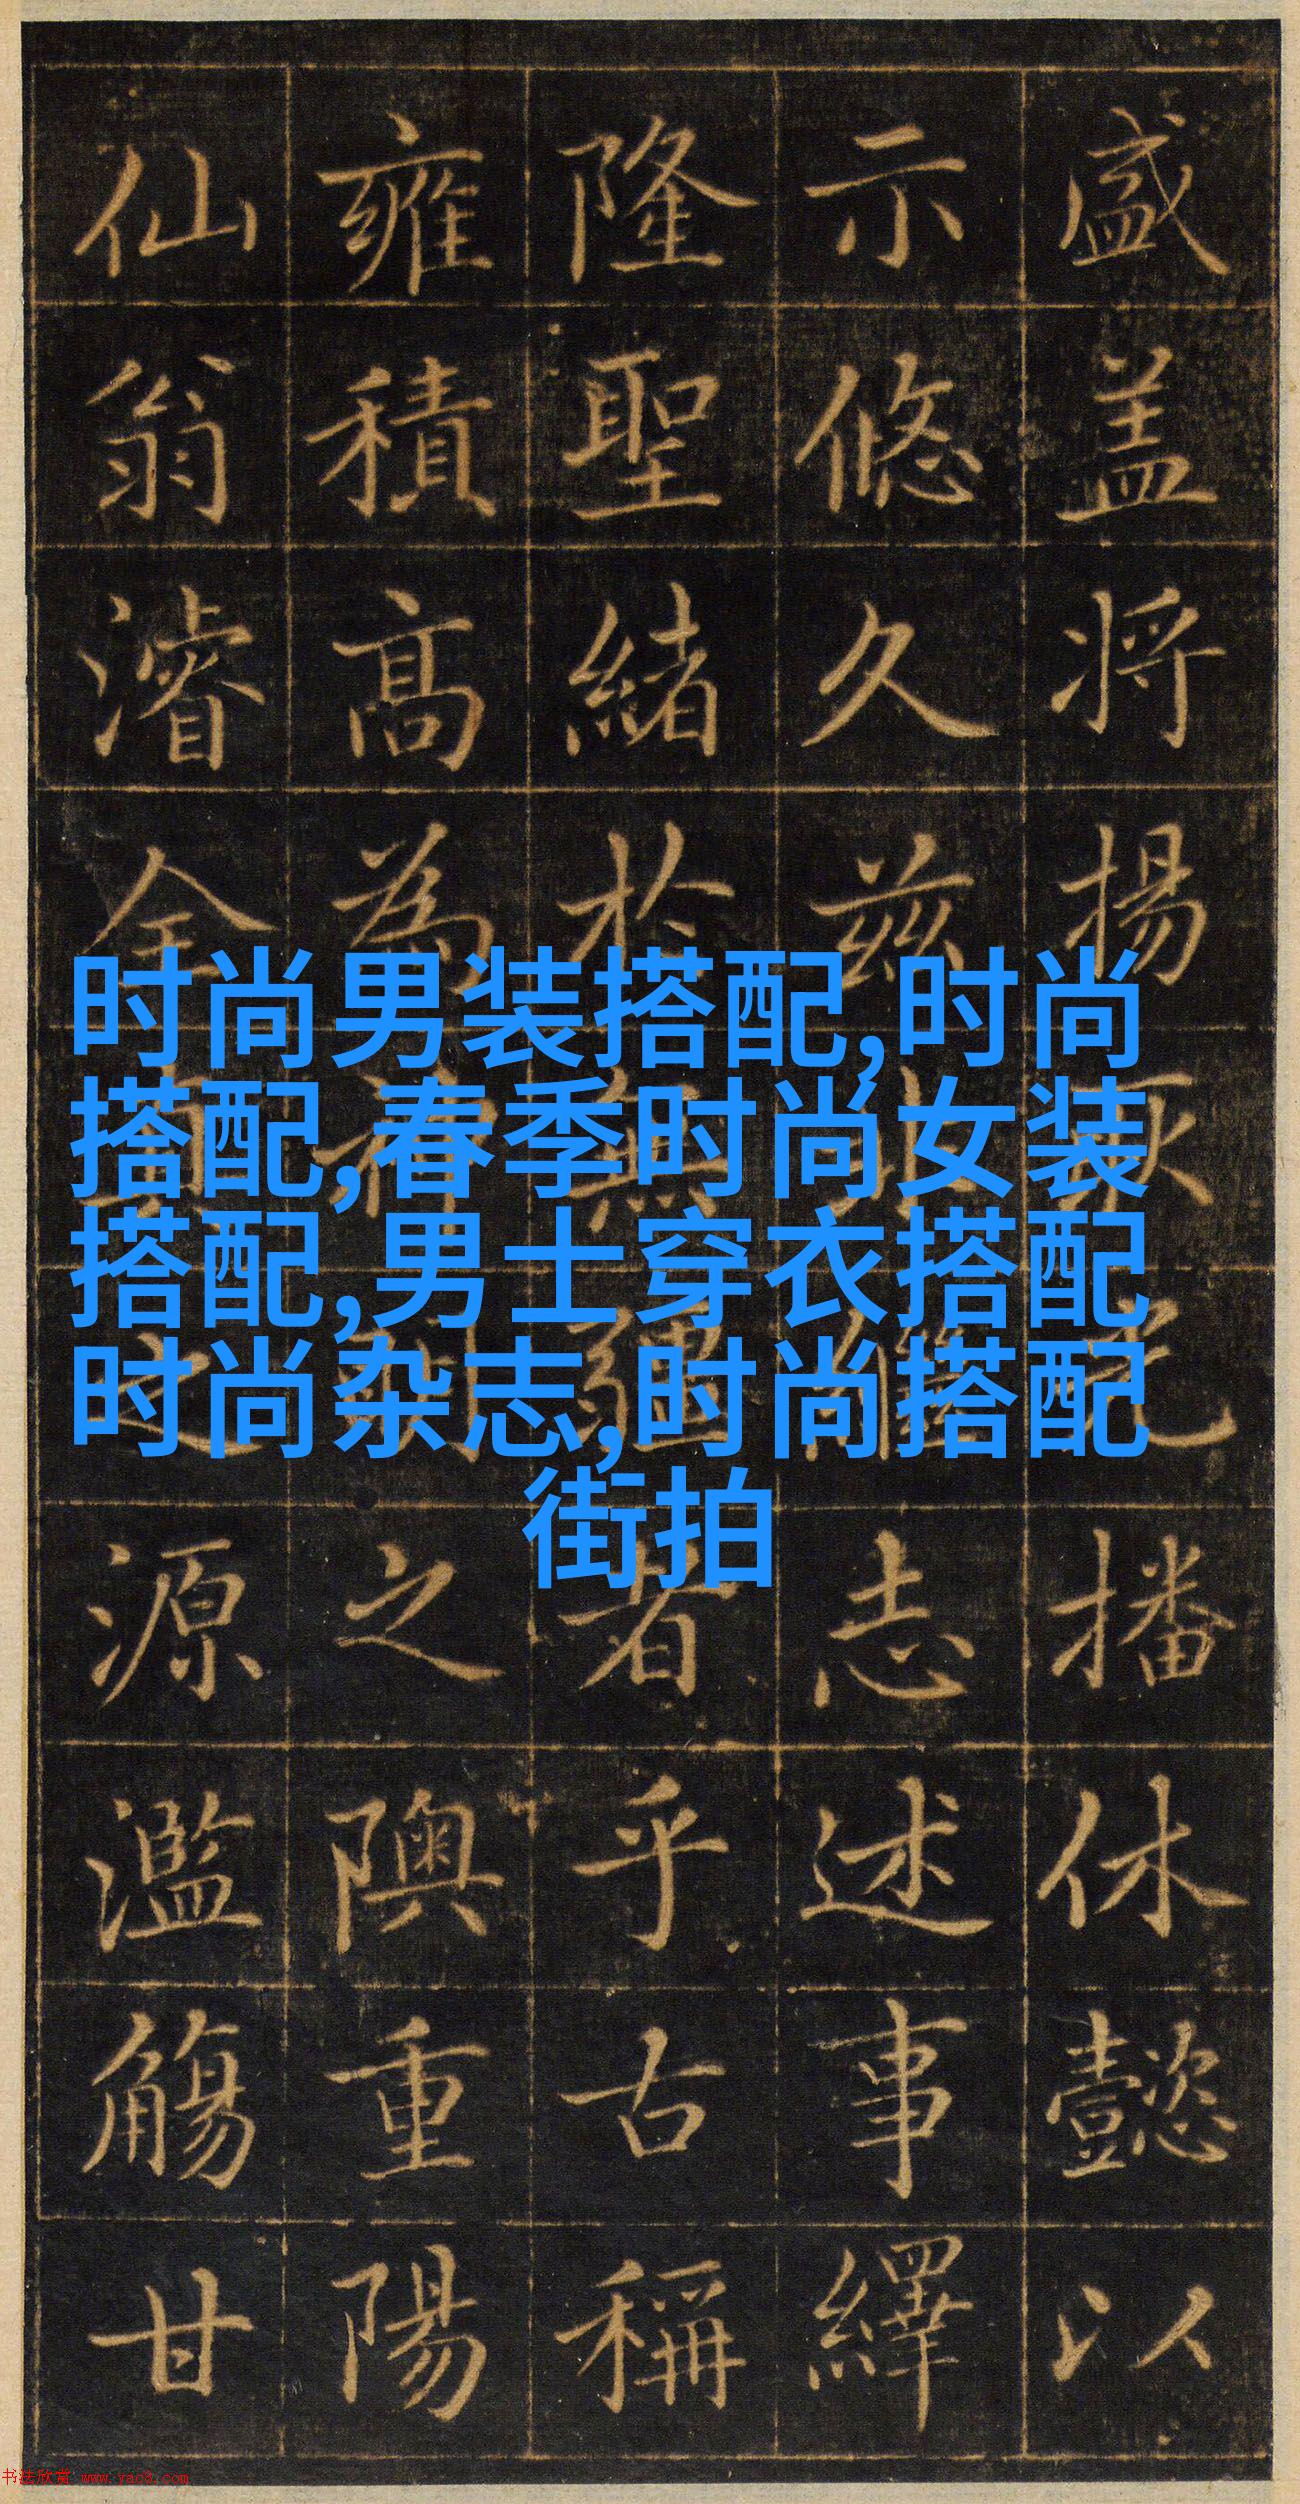 盛盖将揚播休懿以
示悠久兹志述事繹
隆聖緒於無疆者乎古稱
雍積高為神之隩重陽
仙翁濬全真之源濫觴甘
时尚男装搭配,时尚
搭配,春季时尚女装
搭配,男士穿衣搭配
时尚杂志,时尚搭配
街拍
书法欣赏 www.yac8.com